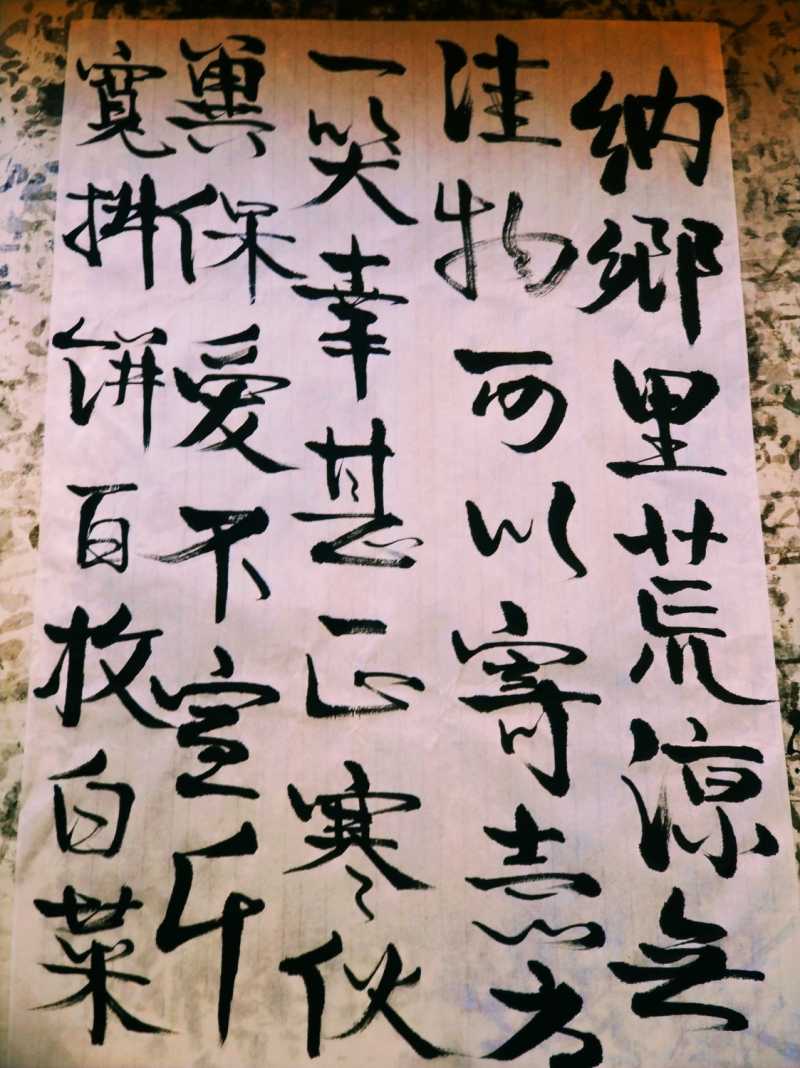 納鄉里荒涼無
佳物可以寄志为
一笑幸甚正寒伙
冀保愛不宣斤
寬掛餅百枚白菜